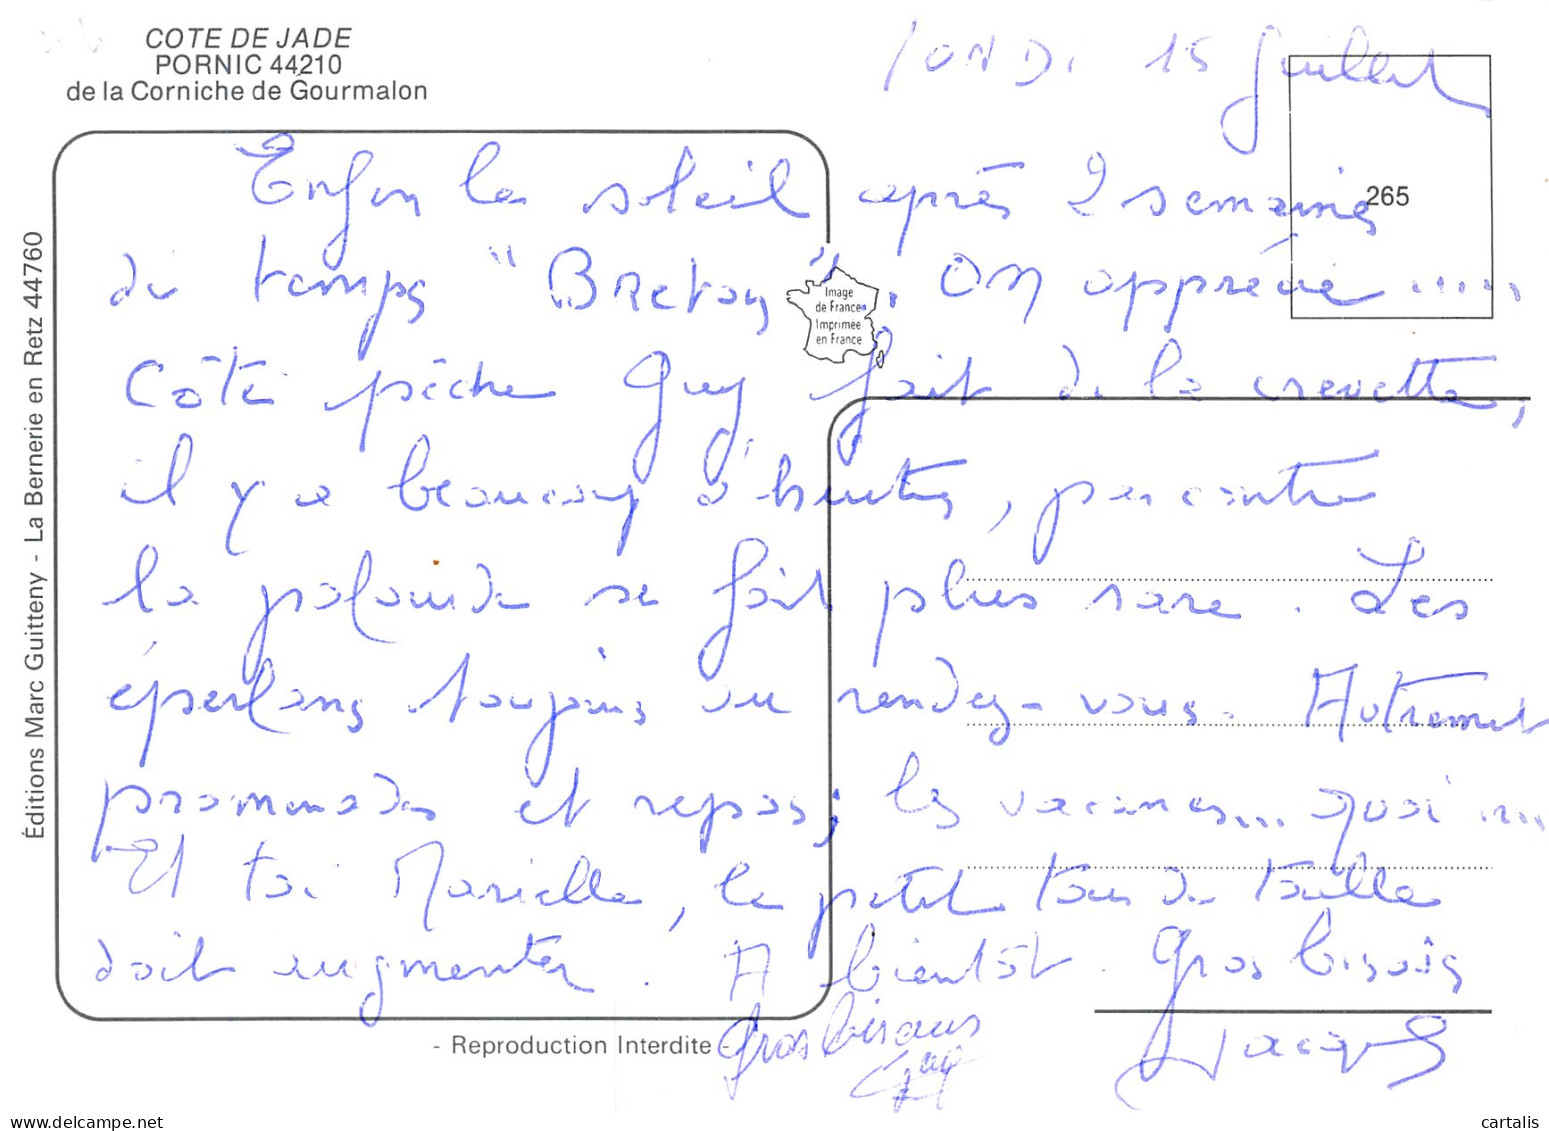 COTE DE JADE
PORNIC 44210
de la Corniche de Gourmalon
15 Juillet
265
Enfin le soleil après 2 semaines
du temps "Breton". On apprécie .....
Côté pêche Guy fait de la crevette,
il y a beaucoup d'huitres, par contre
la palourde se fait plus rare. Les
éperlans toujours au rendez-vous. Autrement
promenades et repos; les vacances... quoi ....
Et toi Marielle, le petit tour de taille
doit augmenter. A bientôt. Gros bisous
Gros bisous
Guy
Image
de France
Imprimée
en France
Éditions Marc Guitteny - La Bernerie en Retz 44760
- Reproduction Interdite -
www.delcampe.net
cartalis